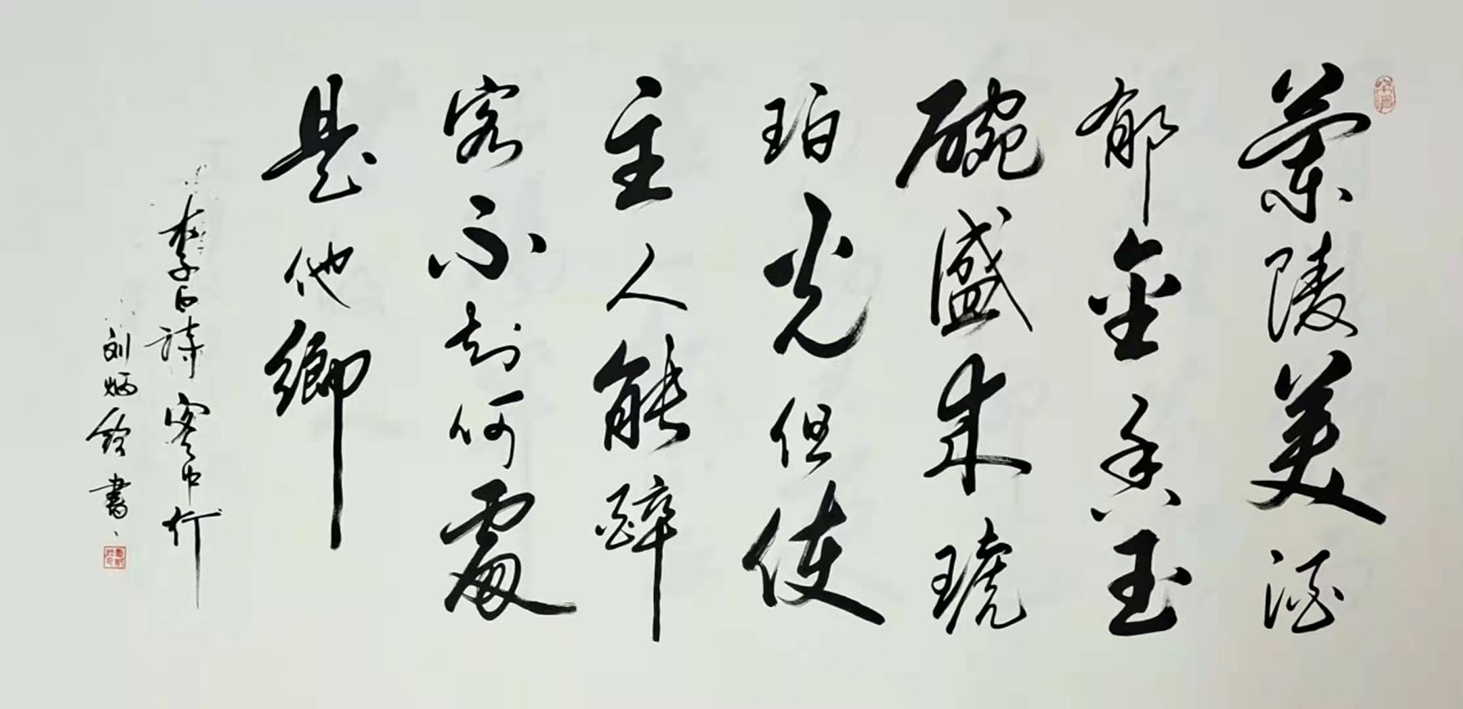 蘭陵美酒
郁金香玉
碗盛来琥
珀光但使
主人能醉
客不知何處
是他鄉
李白詩客中行
刘炳銓書